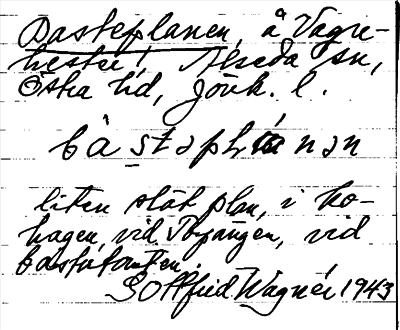 Basteplanen, å Vagne-
hester! Alseda sn,
Östra hd, Jönk. l.
bàstəplànən
liten slät plan, i ko-
hagen, vid ingången, vid
bastutomten.
Gottfrid Wagnér 1943